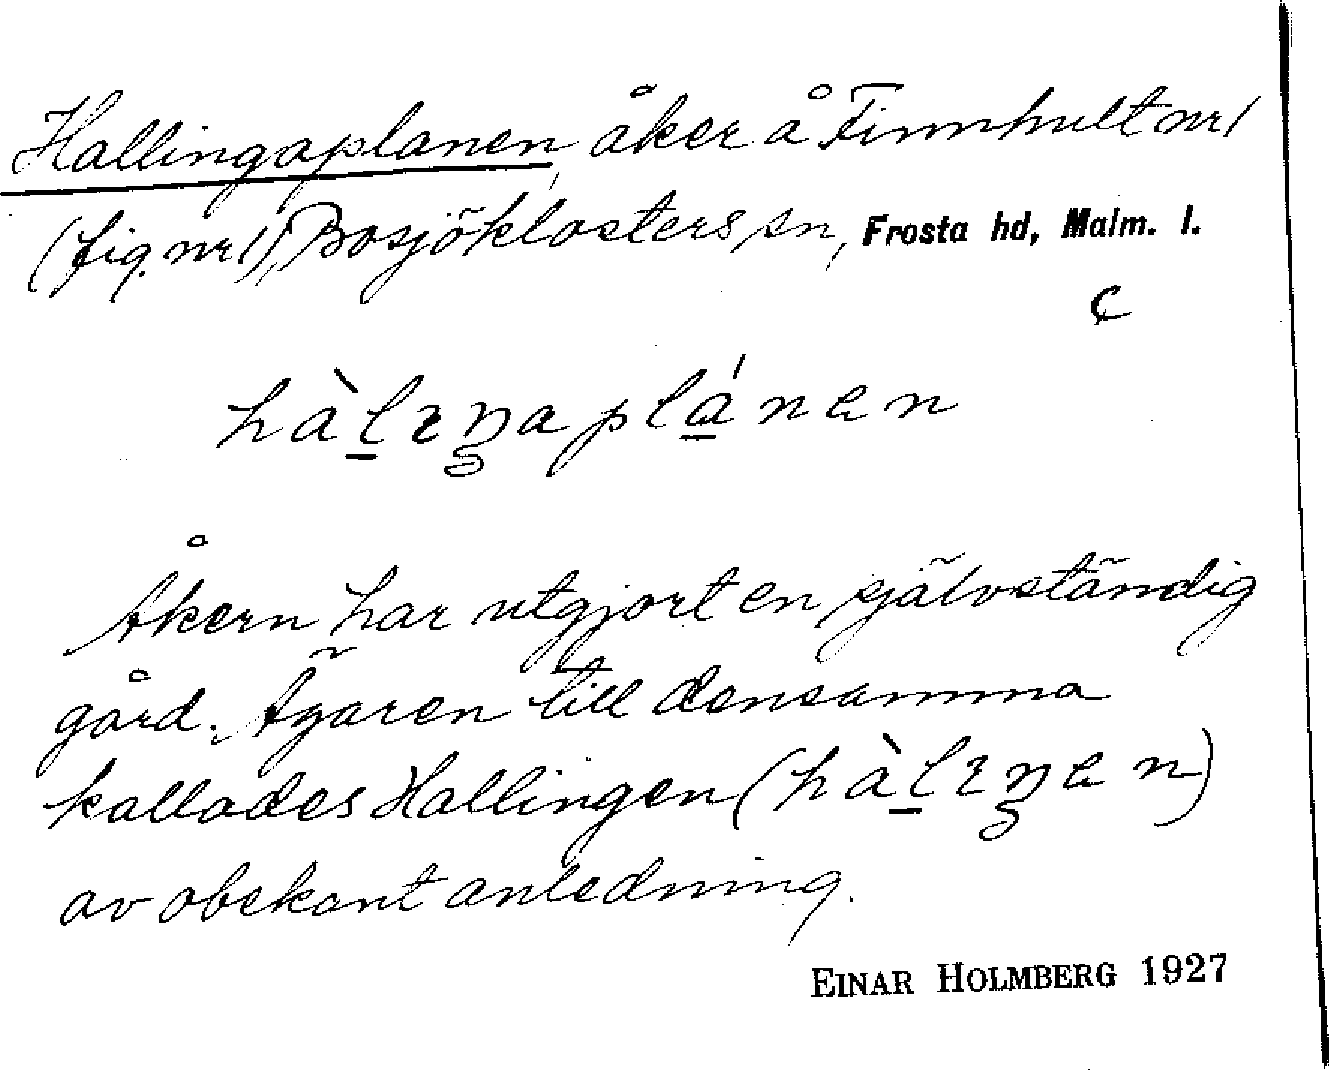 Hallingaplanen, åker å Finnhult nr 1
(fig. nr 1), Bosjöklosters sn, Frosta hd, Malm. l.
c
hàl̠ɪŋaplá̠nen
Åkern har utgjort en självständig
gård. Ägaren till densamma
kallades Hallingen (hàl̠ɪŋen)
av obekant anledning.
EINAR HOLMBERG 1927